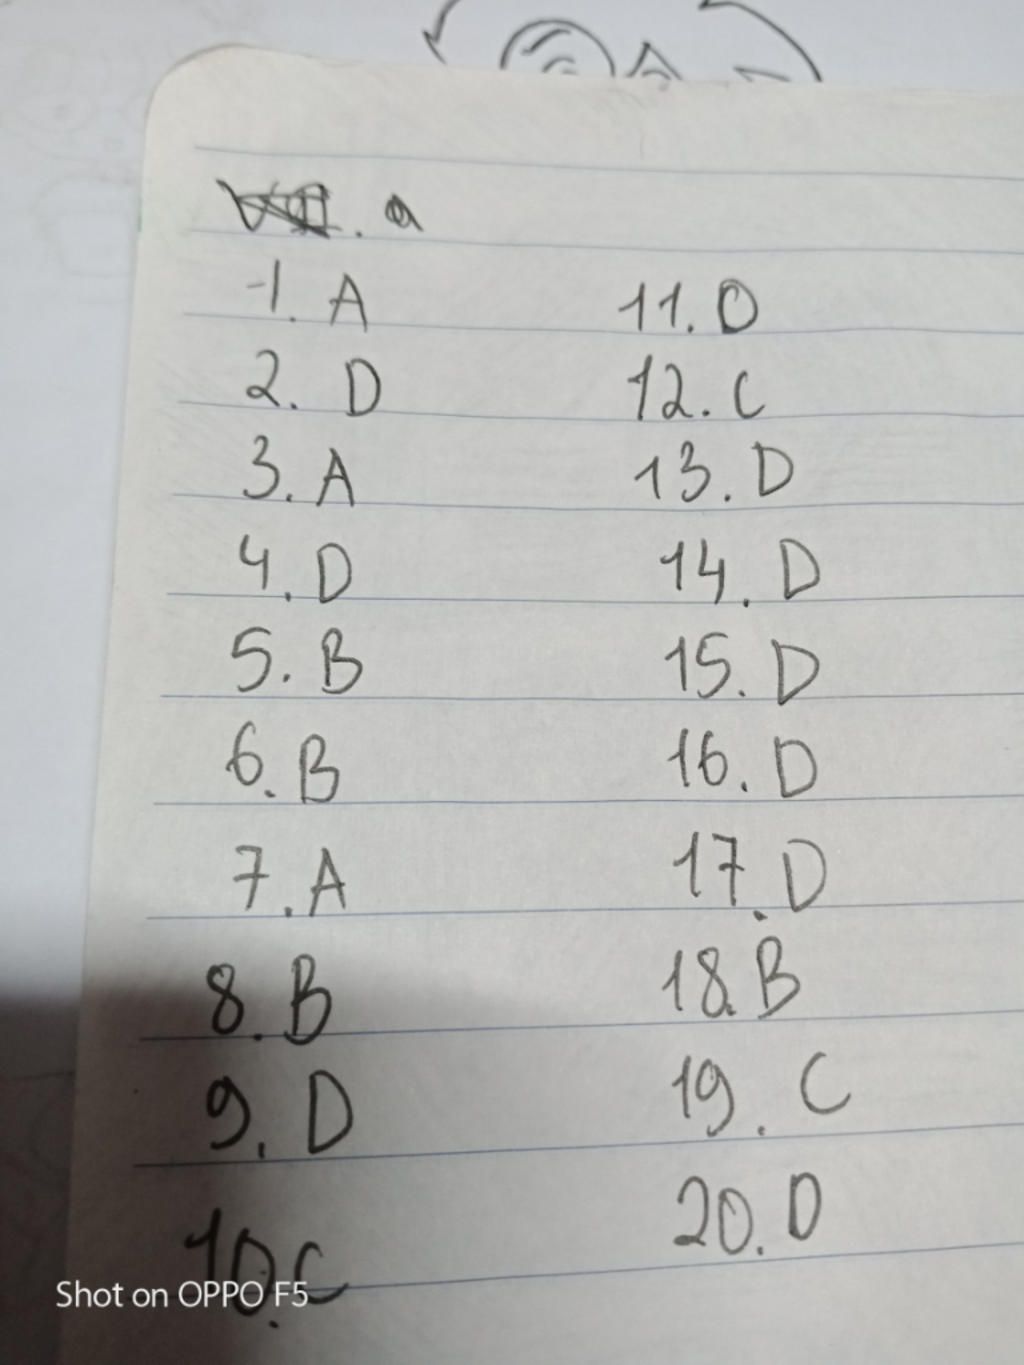 1. A
2. D
3. A
4. D
5. B
6. B
7. A
8. B
9. D
10. C
11. D
12. C
13. D
14. D
15. D
16. D
17. D
18. B
19. C
20. D
Shot on OPPO F5